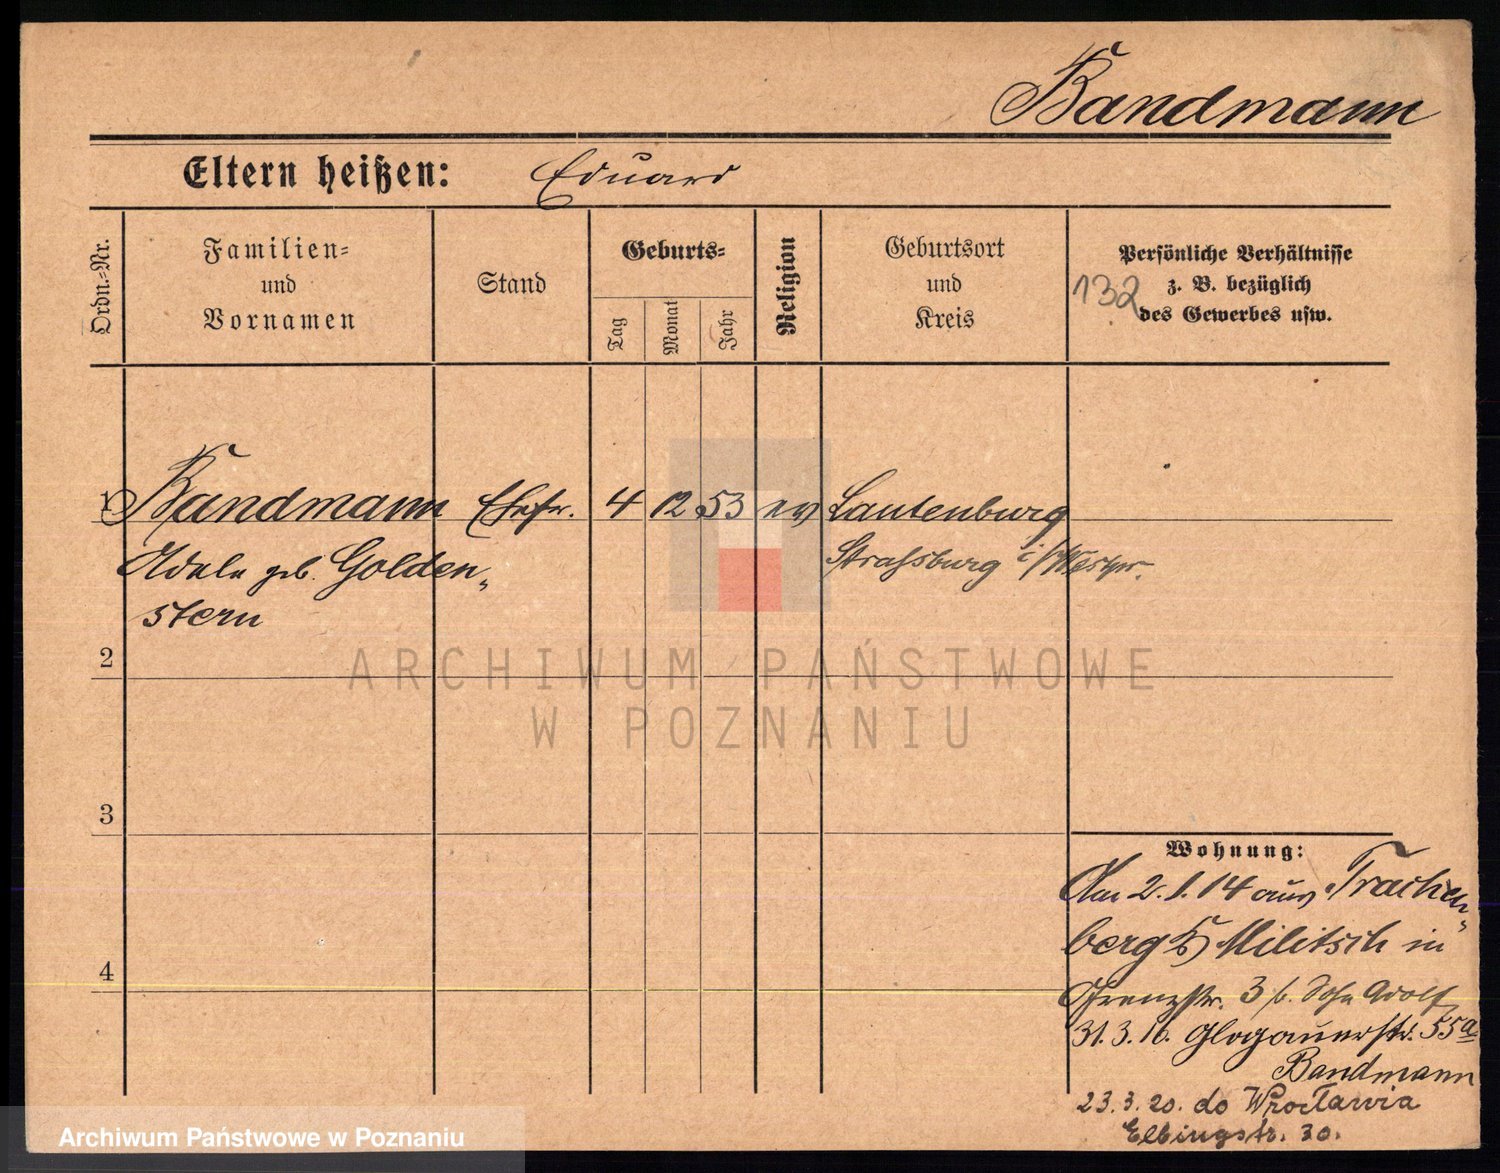 Bandmann
Eltern heißen: Eduard
Ordn.-Nr.
Familien-
und
Vornamen
Stand
Geburts-
Tag
Monat
Jahr
Religion
Geburtsort
und
Kreis
Persönliche Verhältnisse
z. B. bezüglich
des Gewerbes usw.
132
1 Bandmann Ehefr. 4 12 53 ev Lautenburg
Adele geb. Golden- Straßburg i/Westpr.
stern
2
3
4
Wohnung:
Am 2.1.14 aus Trachen-
berg Militsch in
Grenzstr. 3 b. Sohn Adolf
31.3.16. Glogauerstr. 55a
Bandmann
23.3.20. do Wrocławia
Elbingstr. 30.
ARCHIWUM PAŃSTWOWE
W POZNANIU
Archiwum Państwowe w Poznaniu